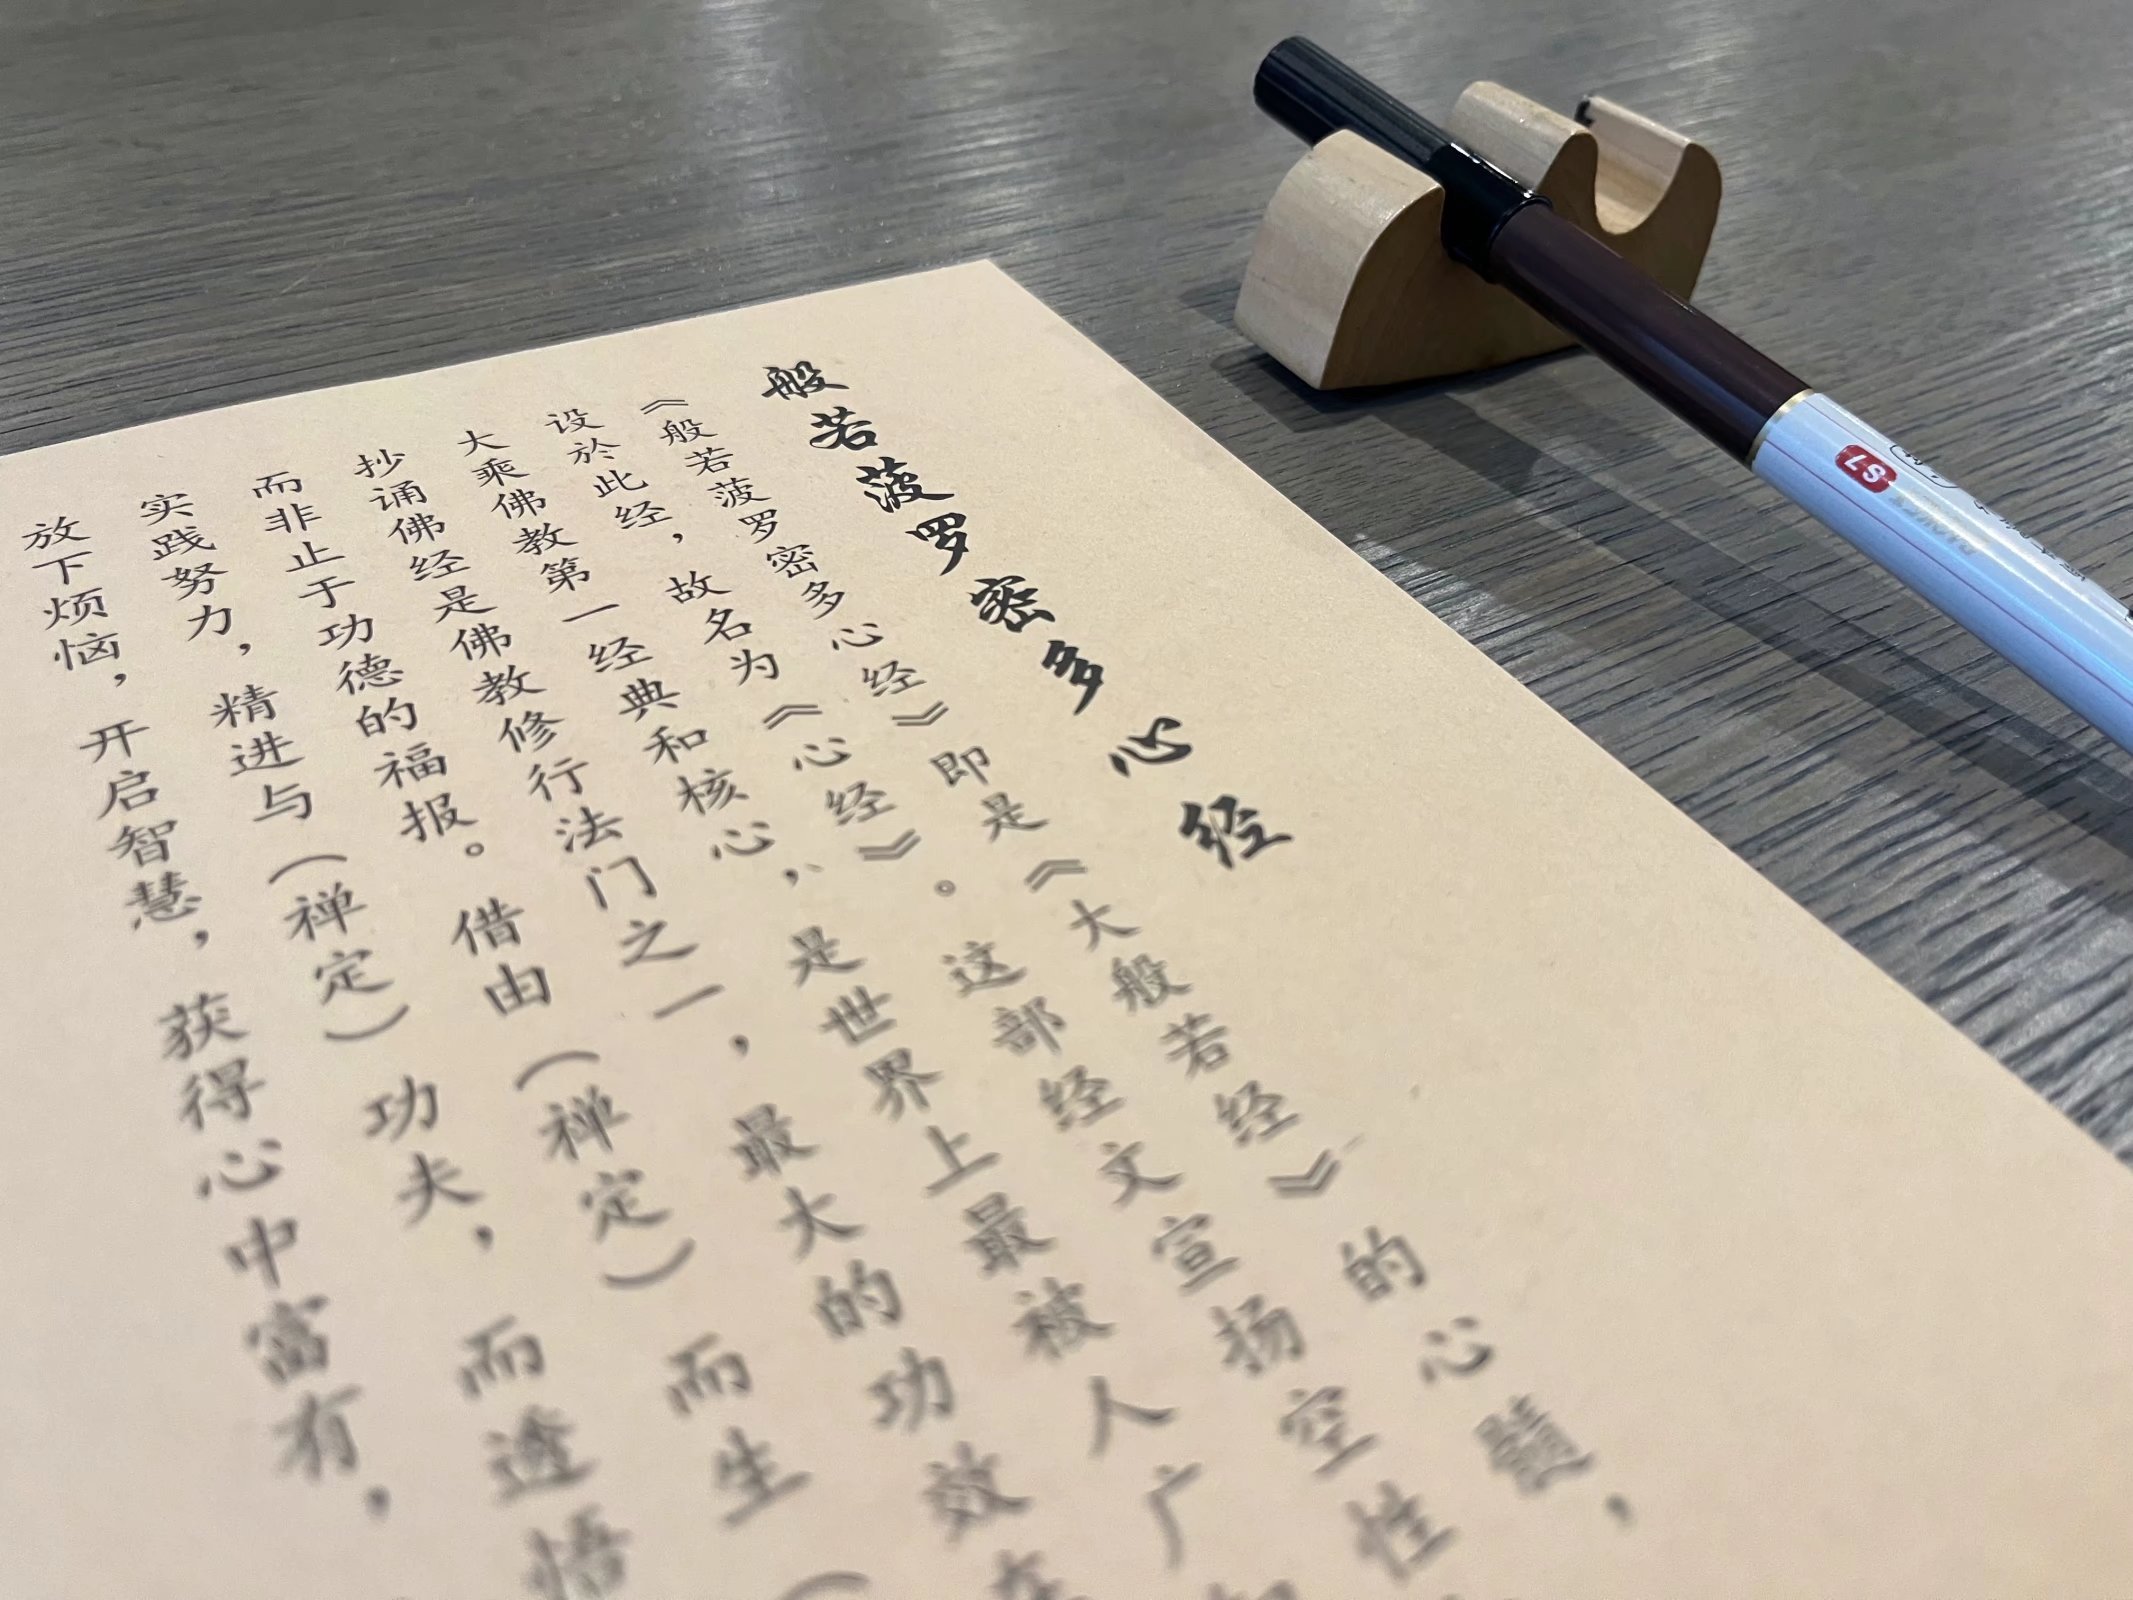 般若菠罗密多心经
《般若菠罗密多心经》即是《大般若经》的心髓，
设於此经，故名为《心经》。这部经文宣扬空性
大乘佛教第一经典和核心，是世界上最被人广
抄诵佛经是佛教修行法门之一，最大的功效在
而非止于功德的福报。借由（禅定）而生（
实践努力，精进与（禅定）功夫，而透悟
放下烦恼，开启智慧，获得心中富有，
SL